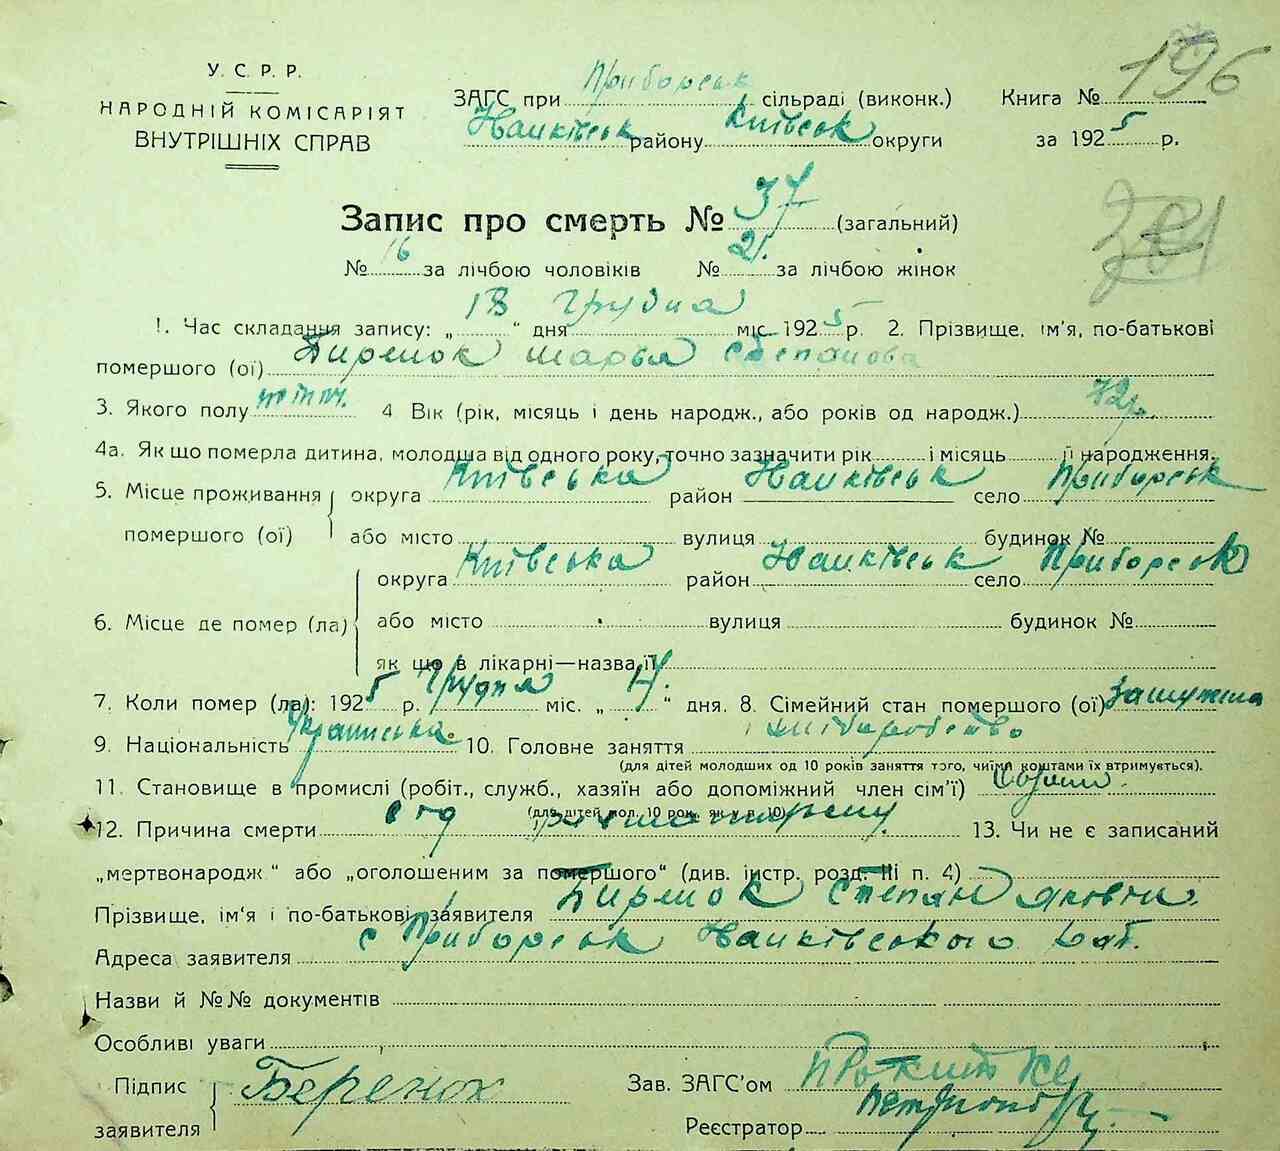 У. С. Р. Р.
НАРОДНІЙ КОМІСАРІЯТ
ВНУТРІШНІХ СПРАВ
ЗАГС при Приборськ сільраді (виконк.)
району Київськ округи
Книга № 196
за 1925 р.
Запис про смерть № 37 (загальний)
№ 16 за лічбою чоловіків № 21 за лічбою жінок
1. Час складання запису: „18“ дня Грудня міс. 1925 р. 2. Прізвище, ім'я, по-батькові
помершого (ої) Бирнок Марья Степанова
3. Якого полу 4 Вік (рік, місяць і день народж., або років од народж.)
4а. Як що померла дитина, молодша від одного року, точно зазначити рік і місяць її народження.
5. Місце проживання округа Київська район село Приборськ
помершого (ої) або місто вулиця будинок №
округа Київська район село Приборськ
6. Місце де помер (ла) або місто вулиця будинок №
як що в лікарні—назва її
7. Коли помер (ла): 1925 р. Грудня міс. „ “ дня. 8. Сімейний стан помершого (ої) Замужня
9. Національність Українська. 10. Головне заняття хліборобство
(для дітей молодших од 10 років заняття того, чиїми коштами їх втримується).
11. Становище в промислі (робіт., служб., хазяїн або допоміжний член сім'ї)
(для дітей мол. 10 рок., як у п. 10)
12. Причина смерти 13. Чи не є записаний
„мертвонародж“ або „оголошеним за помершого“ (див. інстр. розд. III п. 4)
Прізвище, ім'я і по-батькові заявителя Бирнок Степан Якович.
Адреса заявителя с Приборськ
Назви й №№ документів
Особливі уваги
Підпис заявителя Беренок
Зав. ЗАГС'ом
Реєстратор